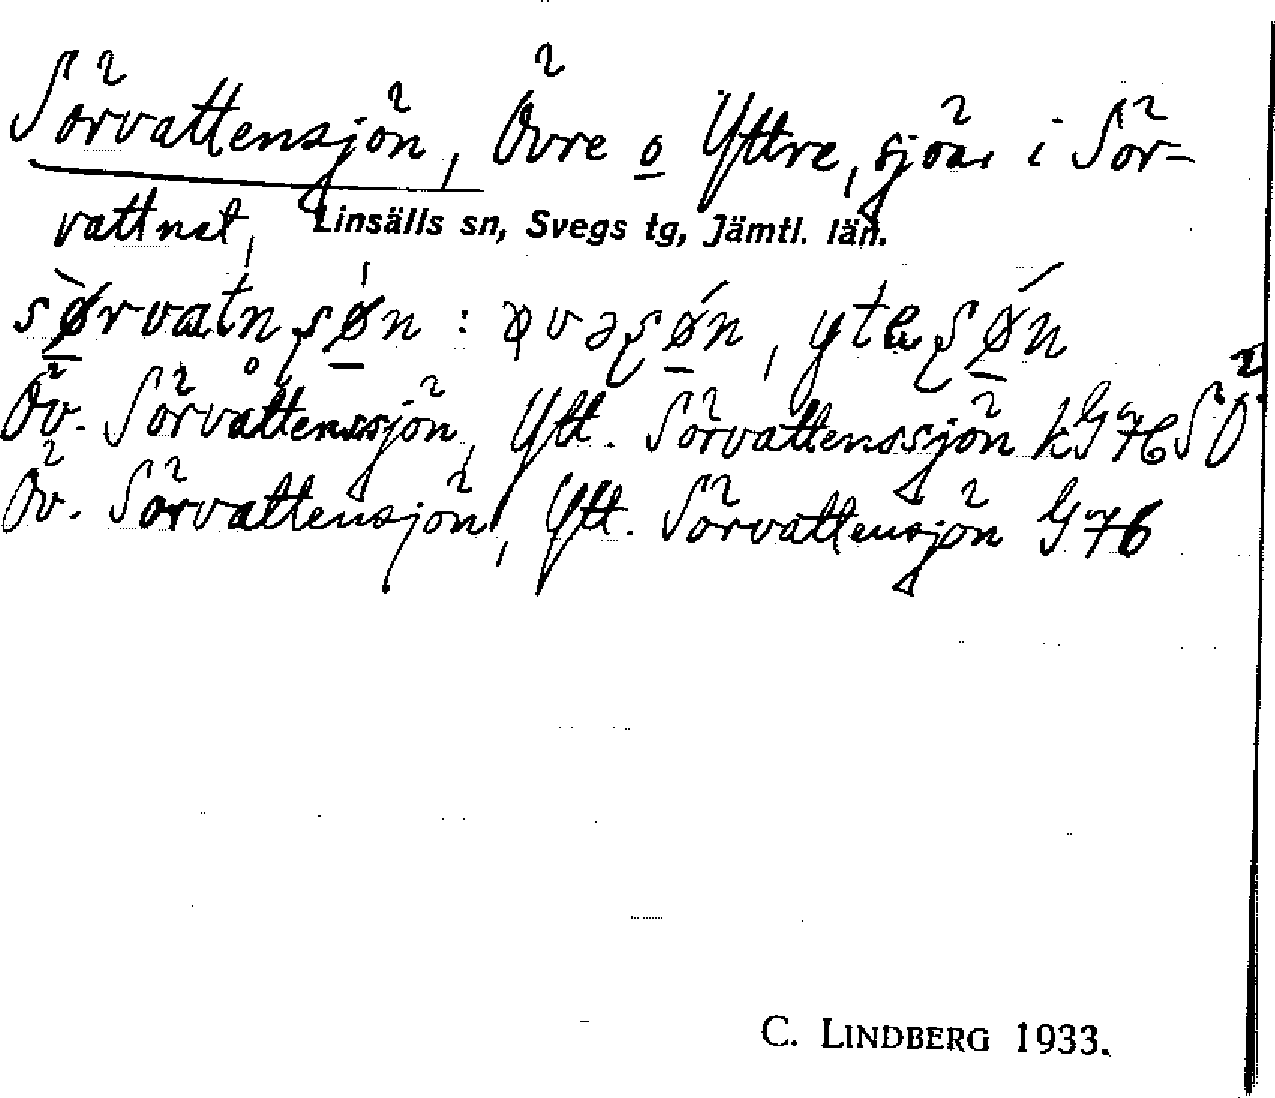 Sörvattensjön, Övre o Yttre, sjöar i Sör-
vattnet, Linsälls sn, Svegs tg, Jämtl. län.
Öv. Sörvåttenssjön, Ytt. Sörvattenssjön kG 76 SÖ
Öv. Sörvattensjön, Ytt. Sörvattensjön G 76
C. LINDBERG 1933.